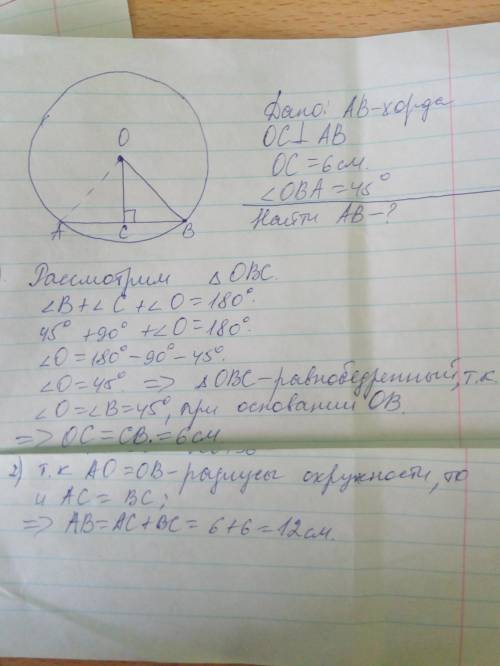 O
A
C
B
Дано: AB-хорда
OC⊥AB
OC=6см.
∠OBA=45°
Найти AB-?
Рассмотрим △OBC.
∠B+∠C+∠O=180°.
45°+90°+∠O=180°
∠O=180°-90°-45°.
∠O=45° => △OBC-равнобедренный, т.к
∠O=∠B=45°, при основании OB.
=> OC=CB.=6см
2) т.к AO=OB-радиусы окружности, то
и AC=BC;
=> AB=AC+BC=6+6=12см.